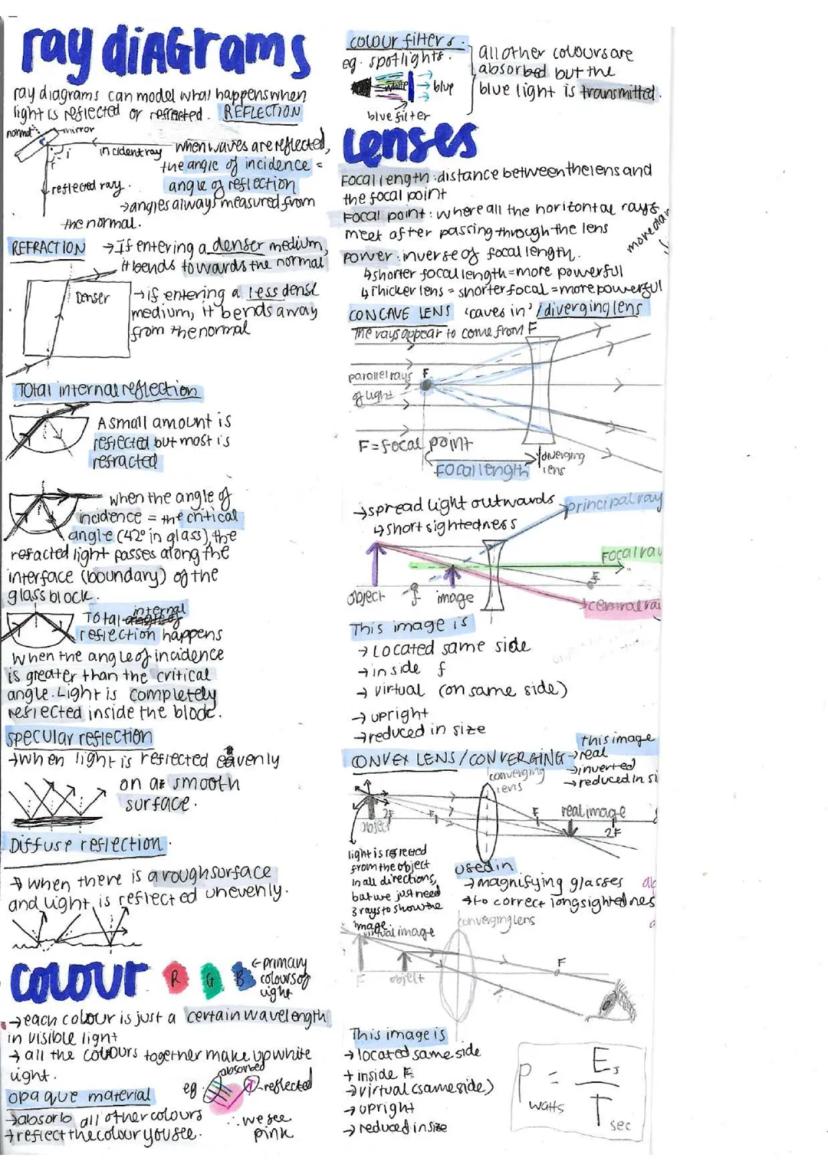 ray diAGrams
ray diagrams can model what happens when
light is reflected or refracted. REFLECTION
normal
mirror
incident ray
i
r
reflected ray.
when waves are reflected,
the angle of incidence =
angle of reflection
→angles always measured from
the normal.
REFRACTION →If entering a denser medium,
it bends towards the normal
Denser
→if entering a less dense
medium, it bends away
from the normal
Total internal reflection
A small amount is
reflected but most is
refracted
when the angle of
incidence = the critical
angle (42° in glass), the
refacted light passes along the
interface (boundary) of the
glass block.
Total internal
reflection happens
when the angle of incidence
is greater than the critical
angle. Light is completely
reflected inside the block.
specular reflection
→when light is reflected evenly
on a smooth
surface.
Diffuse reflection.
→ when there is a rough surface
and light is reflected unevenly.
colour R G B ←primary
colours of
light
→each colour is just a certain wavelength
in visible light
→ all the colours together make up white
light.
opaque material
→absorb all other colours
→reflect the colour you see.
eg.
absorbed
reflected
∴ we see
pink
colour filters.
eg. spotlights.
white
blue
blue filter
all other colours are
absorbed but the
blue light is transmitted.
Lenses
Focal length: distance between the lens and
the focal point
Focal point: where all the horizontal rays
meet after passing through the lens
power: inverse of focal length.
↳shorter focal length = more powerful
↳Thicker lens = shorter focal = more powerful
CONCAVE LENS 'caves in' / diverging lens
The rays appear to come from F
parallel rays
of light
F
F = focal point
Focal length
diverging
lens
→spread light outwards
↳short sightedness
principal ray
Focal ray
central ra
object
f
image
F
This image is
→ Located same side
→ inside f
→ virtual (on same side)
→ upright
→ reduced in size
CONVEX LENS / CONVERGING
this image
→real
→inverted
→reduced in si
converging
lens
object
2F
F
F
real image
2F
light is reflected
from the object
in all directions,
but we just need
3 rays to show the
image.
used in
→ magnifying glasses
→ to correct longsightednes
virtual image
converging lens
F
object
F
This image is
→ located same side
→ inside F
→ virtual (same side)
→ upright
→ reduced in size
P watts = E J / T sec